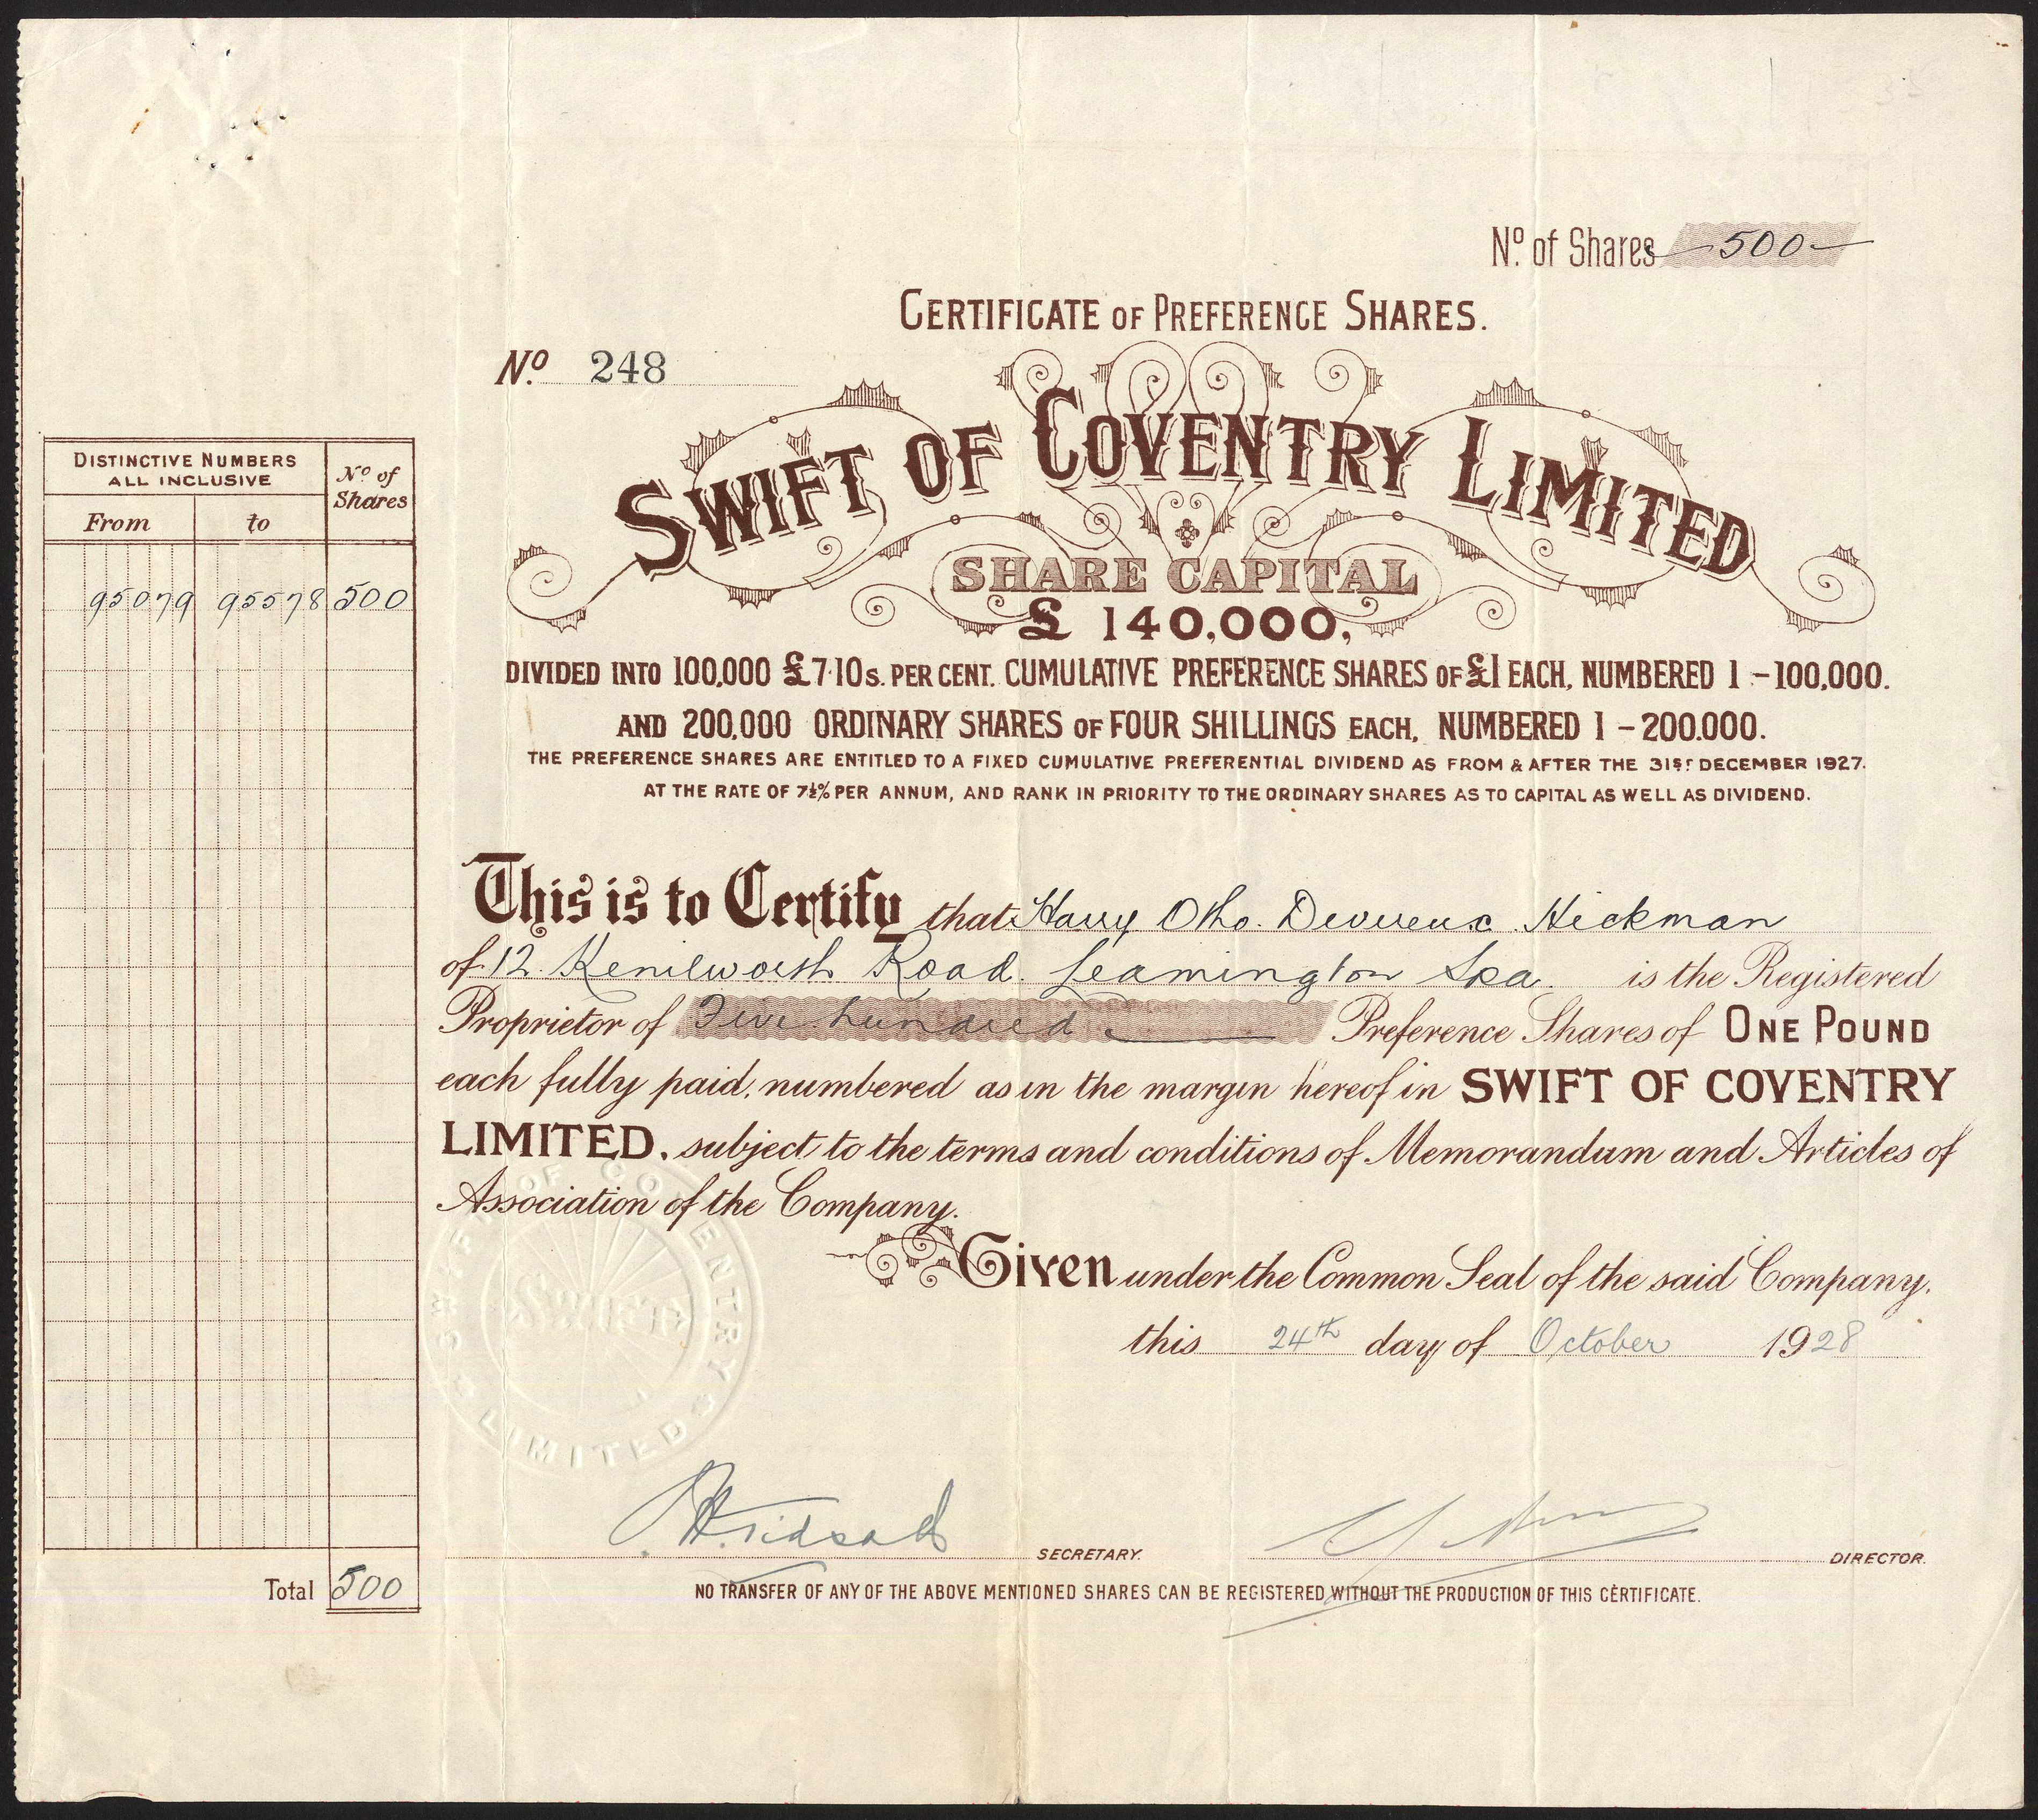 No. of Shares 500
CERTIFICATE OF PREFERENCE SHARES.
No. 248
SWIFT OF COVENTRY LIMITED
SHARE CAPITAL
£ 140,000,
DIVIDED INTO 100,000 £7.10s. PER CENT. CUMULATIVE PREFERENCE SHARES OF £1 EACH, NUMBERED 1 - 100,000.
AND 200,000 ORDINARY SHARES OF FOUR SHILLINGS EACH, NUMBERED 1 - 200.000.
THE PREFERENCE SHARES ARE ENTITLED TO A FIXED CUMULATIVE PREFERENTIAL DIVIDEND AS FROM & AFTER THE 31ST DECEMBER 1927.
AT THE RATE OF 7½% PER ANNUM, AND RANK IN PRIORITY TO THE ORDINARY SHARES AS TO CAPITAL AS WELL AS DIVIDEND.
DISTINCTIVE NUMBERS
ALL INCLUSIVE
No. of
Shares
From to
95079 95578 500
Total 500
This is to Certify that Harry Otho. Devereux Hickman
of 12. Kenilworth Road. Leamington Spa. is the Registered
Proprietor of Five hundred Preference Shares of ONE POUND
each fully paid, numbered as in the margin hereof in SWIFT OF COVENTRY
LIMITED, subject to the terms and conditions of Memorandum and Articles of
Association of the Company.
Given under the Common Seal of the said Company,
this 24th day of October 1928
SWIFT OF COVENTRY
LIMITED
SWIFT
SECRETARY.
DIRECTOR.
NO TRANSFER OF ANY OF THE ABOVE MENTIONED SHARES CAN BE REGISTERED WITHOUT THE PRODUCTION OF THIS CERTIFICATE.